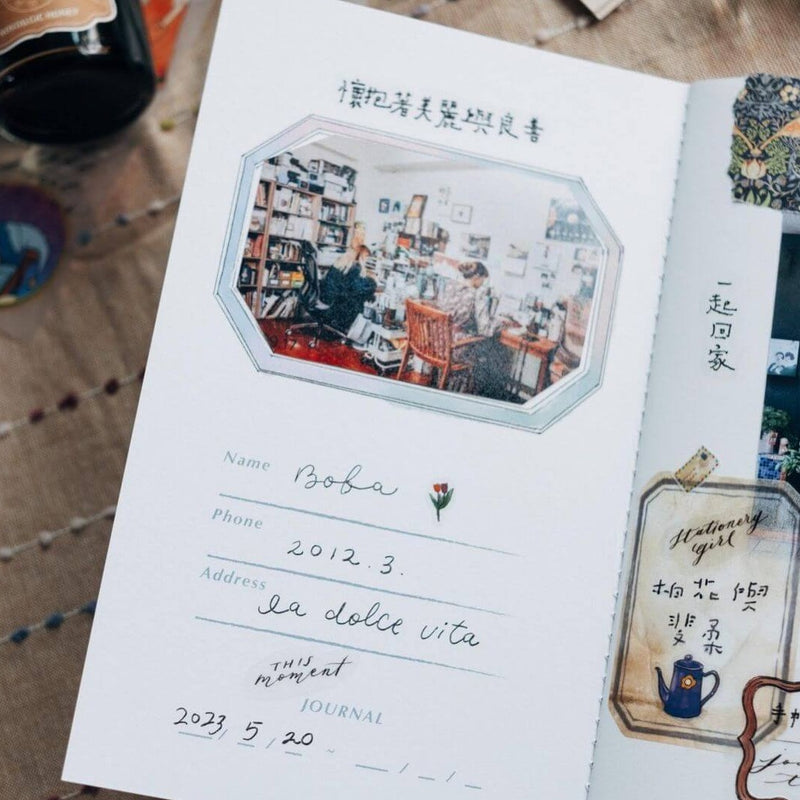 懷抱著美麗與良善
Name Boba
Phone 2012.3.
Address la dolce vita
THIS
moment
JOURNAL
2023/5/20 ~ / /
一起回家
Stationery
girl
柏花與
斐柔